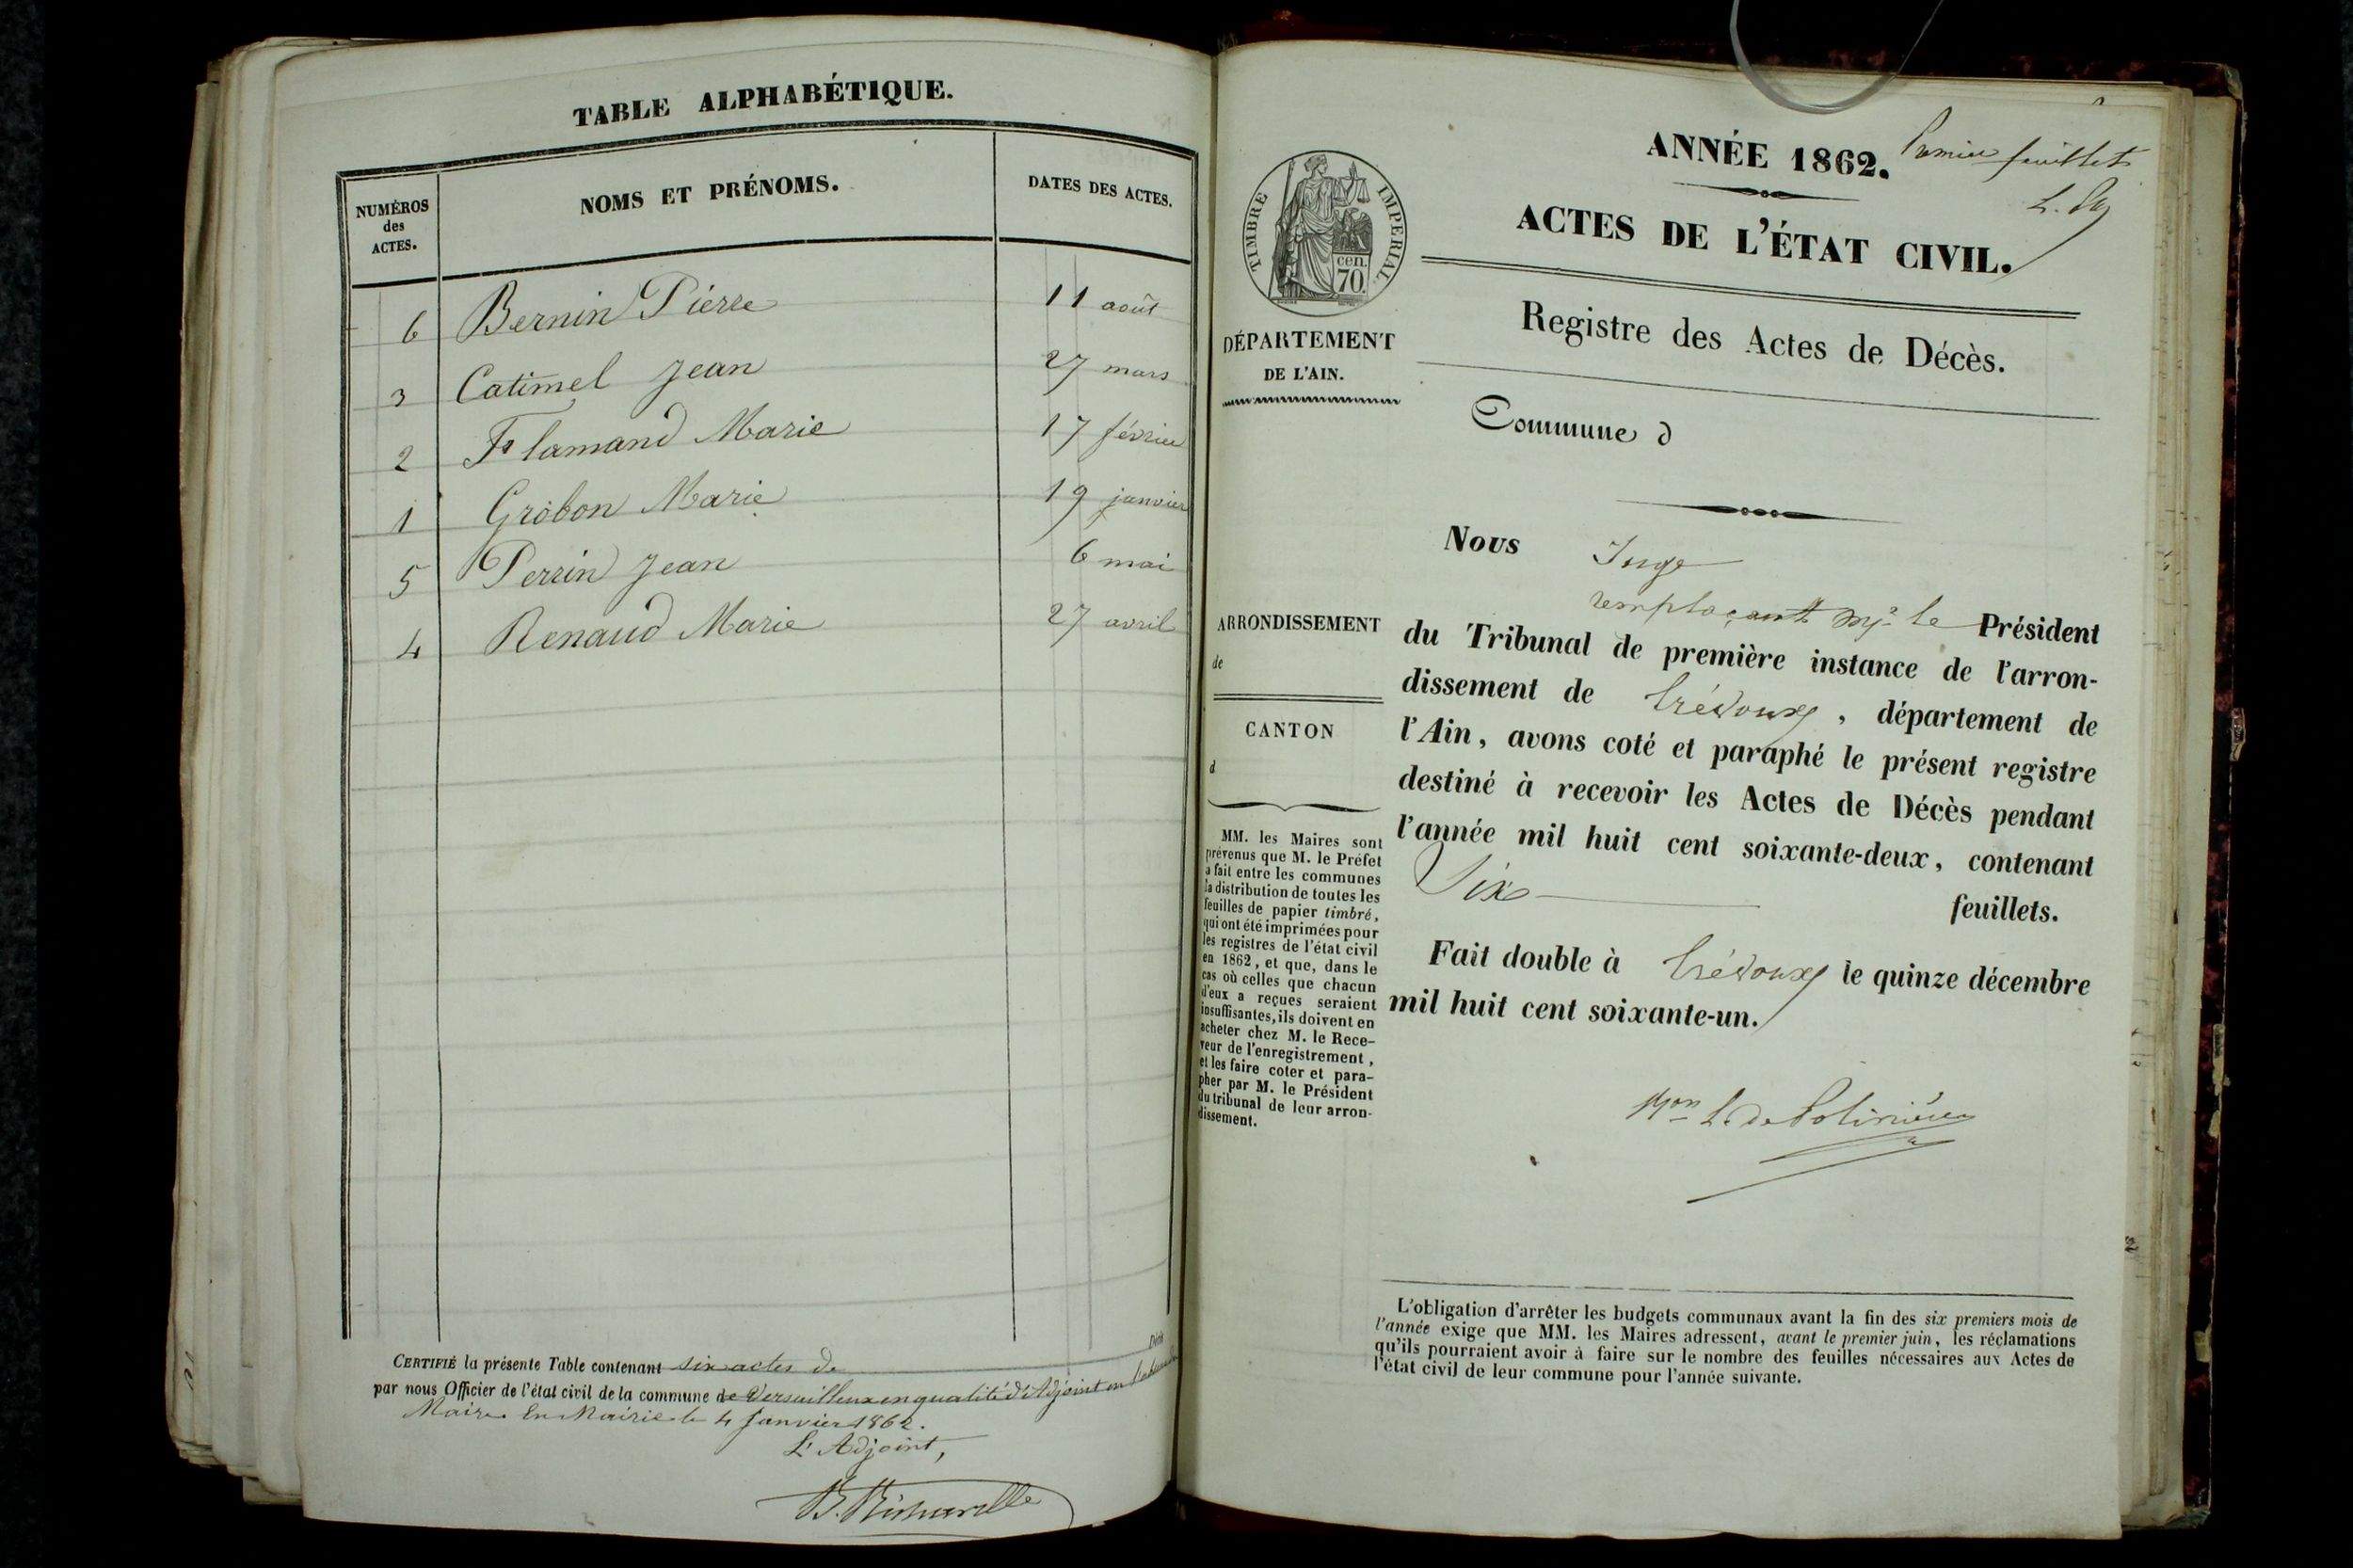 TABLE ALPHABÉTIQUE.
NUMÉROS
des
ACTES.
NOMS ET PRÉNOMS.
DATES DES ACTES.
6 Bernin Pierre 11 août
3 Catimel Jean 27 mars
2 Flamand Marie 17 février
1 Grobon Marie 19 janvier
5 Perrin Jean 6 mai
4 Renaud Marie 27 avril
CERTIFIÉ la présente Table contenant six actes de
par nous Officier de l'état civil de la commune de Versailleux en qualité d'Adjoint en
Maire. En Mairie le 4 Janvier 1862.
L'Adjoint,
ANNÉE 1862.
Premier feuillet
ACTES DE L'ÉTAT CIVIL.
TIMBRE IMPERIAL
cen.
70.
Registre des Actes de Décès.
DÉPARTEMENT
DE L'AIN.
Commune d
Nous Juge
remplaçant Mr le Président
du Tribunal de première instance de l'arron-
dissement de Trévoux, département de
l'Ain, avons coté et paraphé le présent registre
destiné à recevoir les Actes de Décès pendant
l'année mil huit cent soixante-deux, contenant
Six feuillets.
Fait double à Trévoux le quinze décembre
mil huit cent soixante-un.
ARRONDISSEMENT
de
CANTON
d
MM. les Maires sont
prévenus que M. le Préfet
a fait entre les communes
la distribution de toutes les
feuilles de papier timbré,
qui ont été imprimées pour
les registres de l'état civil
en 1862, et que, dans le
cas où celles que chacun
d'eux a reçues seraient
insuffisantes, ils doivent en
acheter chez M. le Rece-
veur de l'enregistrement,
et les faire coter et para-
pher par M. le Président
du tribunal de leur arron-
dissement.
L'obligation d'arrêter les budgets communaux avant la fin des six premiers mois de
l'année exige que MM. les Maires adressent, avant le premier juin, les réclamations
qu'ils pourraient avoir à faire sur le nombre des feuilles nécessaires aux Actes de
l'état civil de leur commune pour l'année suivante.